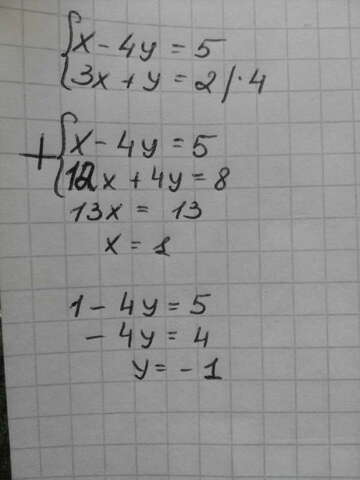 {x - 4y = 5
{3x + y = 2 /·4
+{x - 4y = 5
{12x + 4y = 8
13x = 13
x = 1
1 - 4y = 5
- 4y = 4
y = - 1